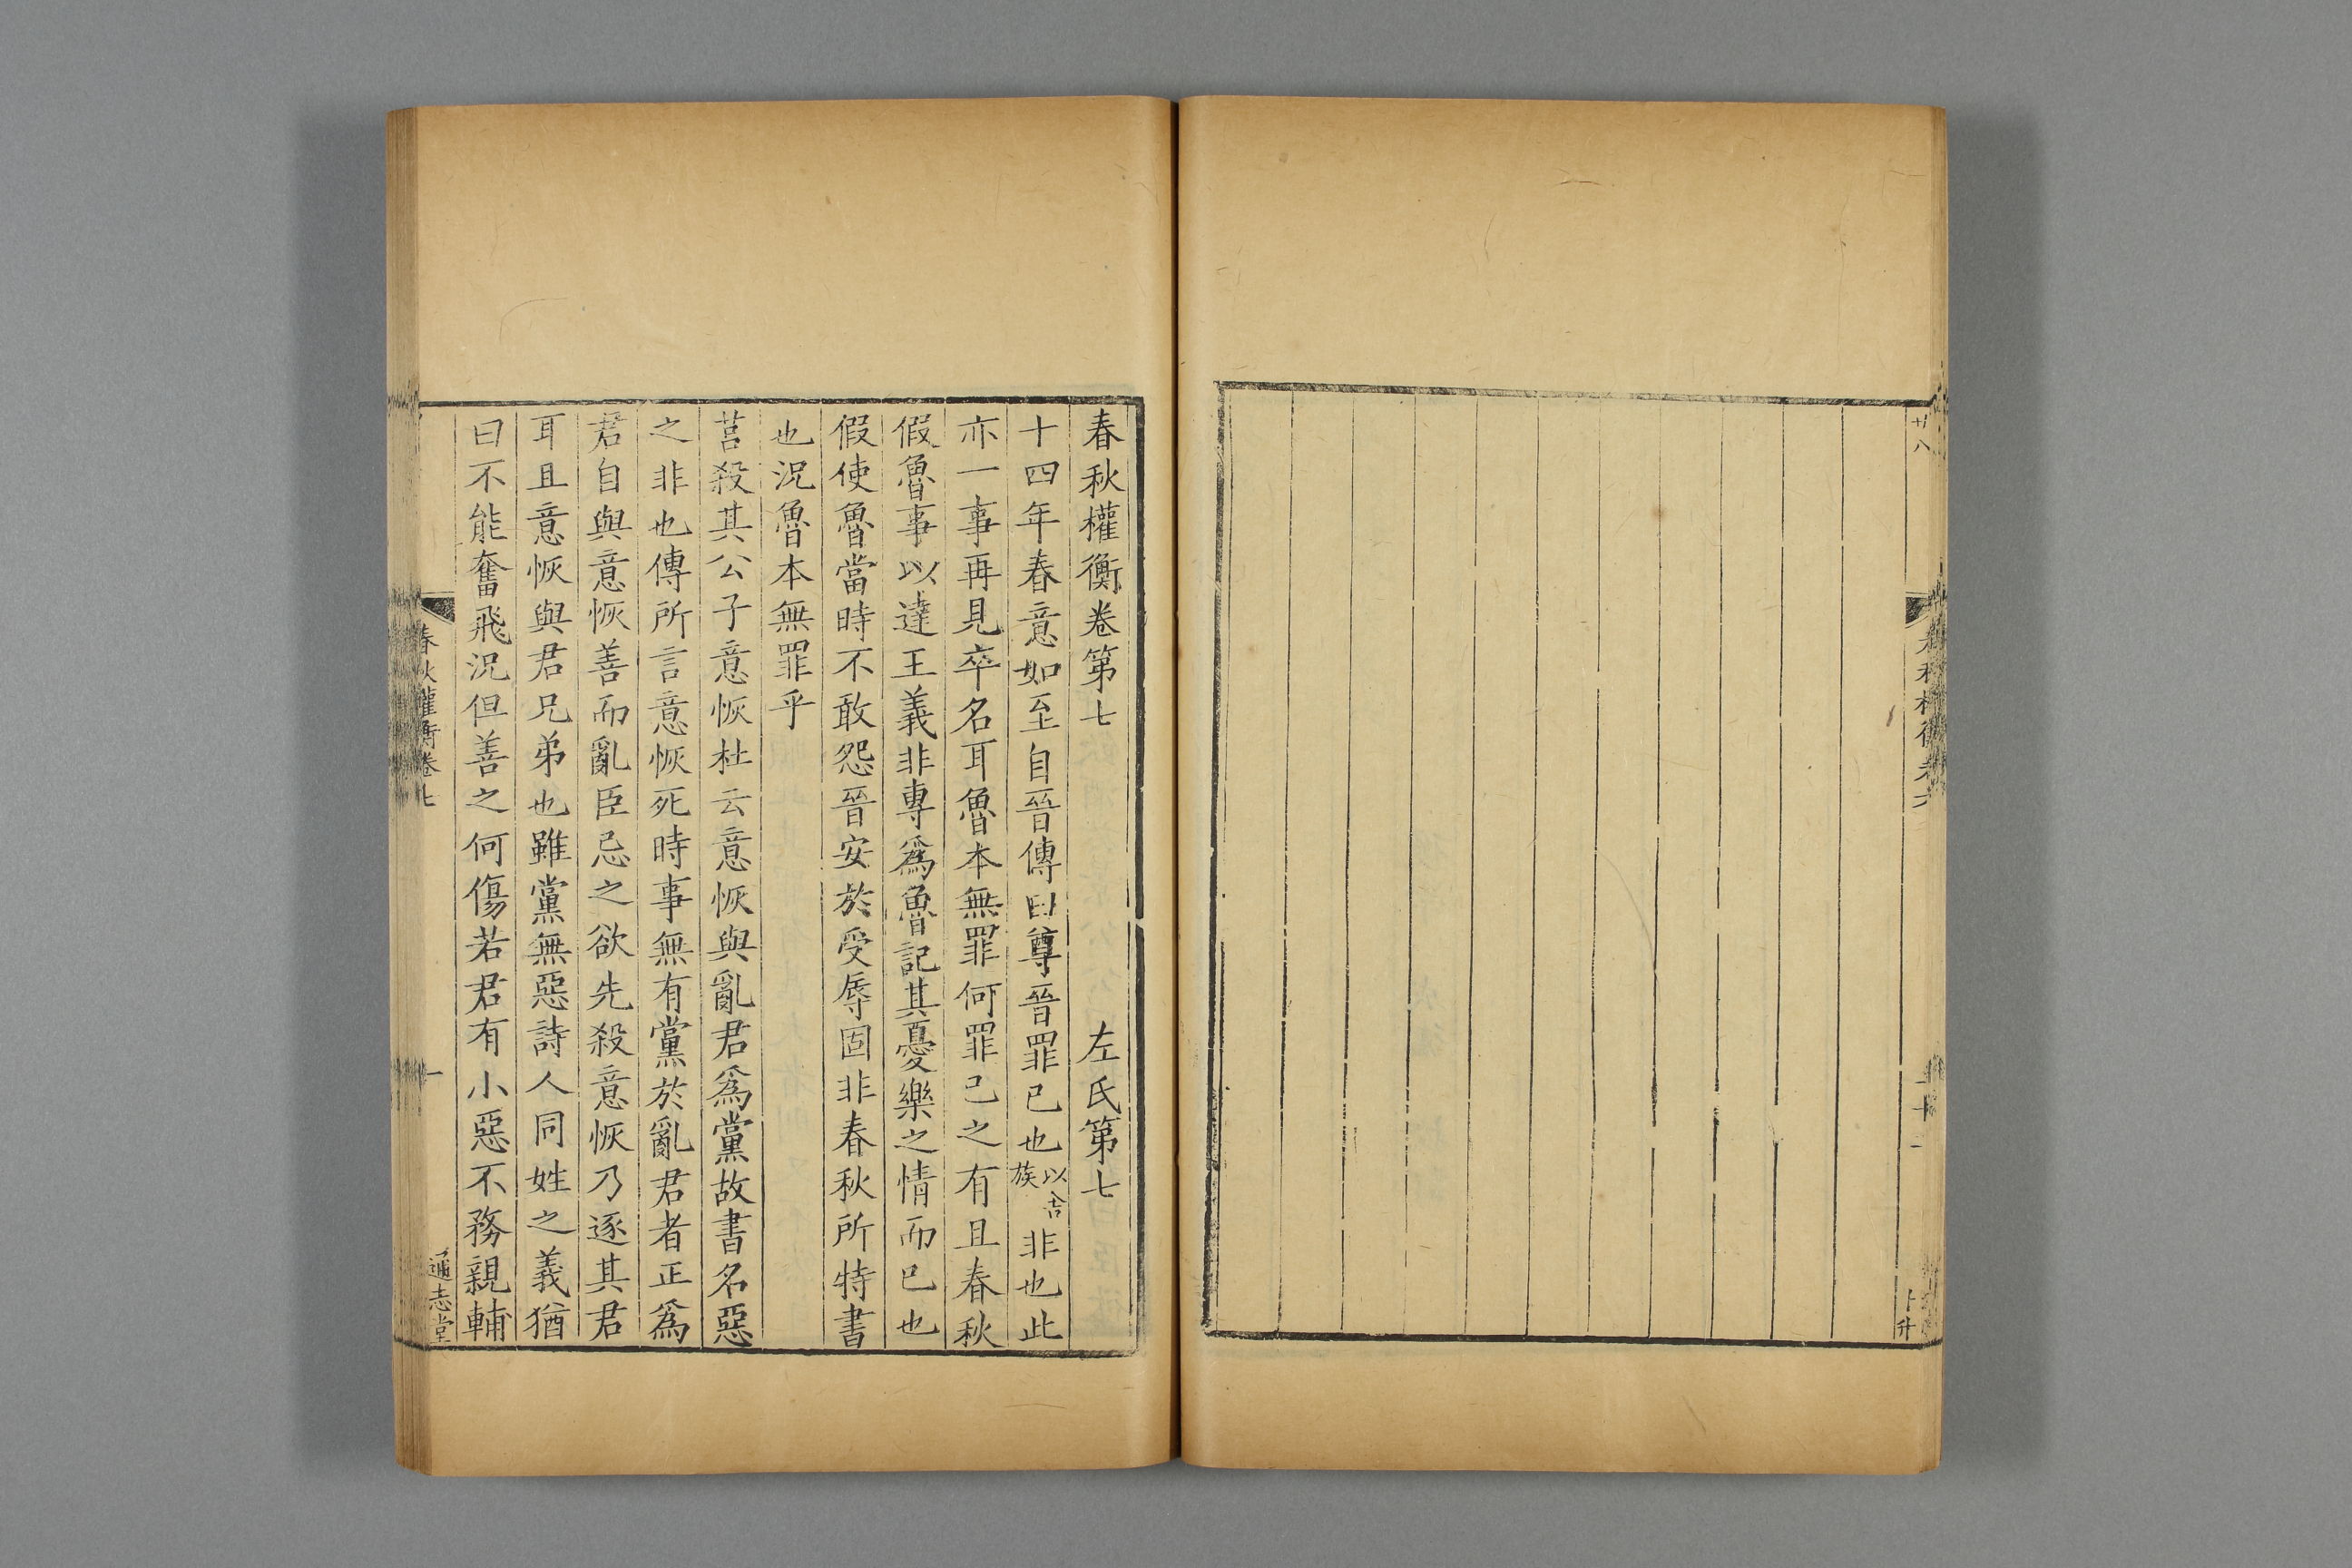 廿八
春秋權衡卷六
春秋權衡卷第七 左氏第七
十四年春意如至自晉傳曰尊晉罪已也以舍族非也此
亦一事再見卒名耳魯本無罪何罪己之有且春秋
假魯事以達王義非專爲魯記其憂樂之情而已也
假使魯當時不敢怨晉安於受辱固非春秋所特書
也況魯本無罪乎
莒殺其公子意恢杜云意恢與亂君爲黨故書名惡
之非也傳所言意恢死時事無有黨於亂君者正爲
君自與意恢善而亂臣忌之欲先殺意恢乃逐其君
耳且意恢與君兄弟也雖黨無惡詩人同姓之義猶
曰不能奮飛況但善之何傷若君有小惡不務親輔
春秋權衡卷七
一
通志堂